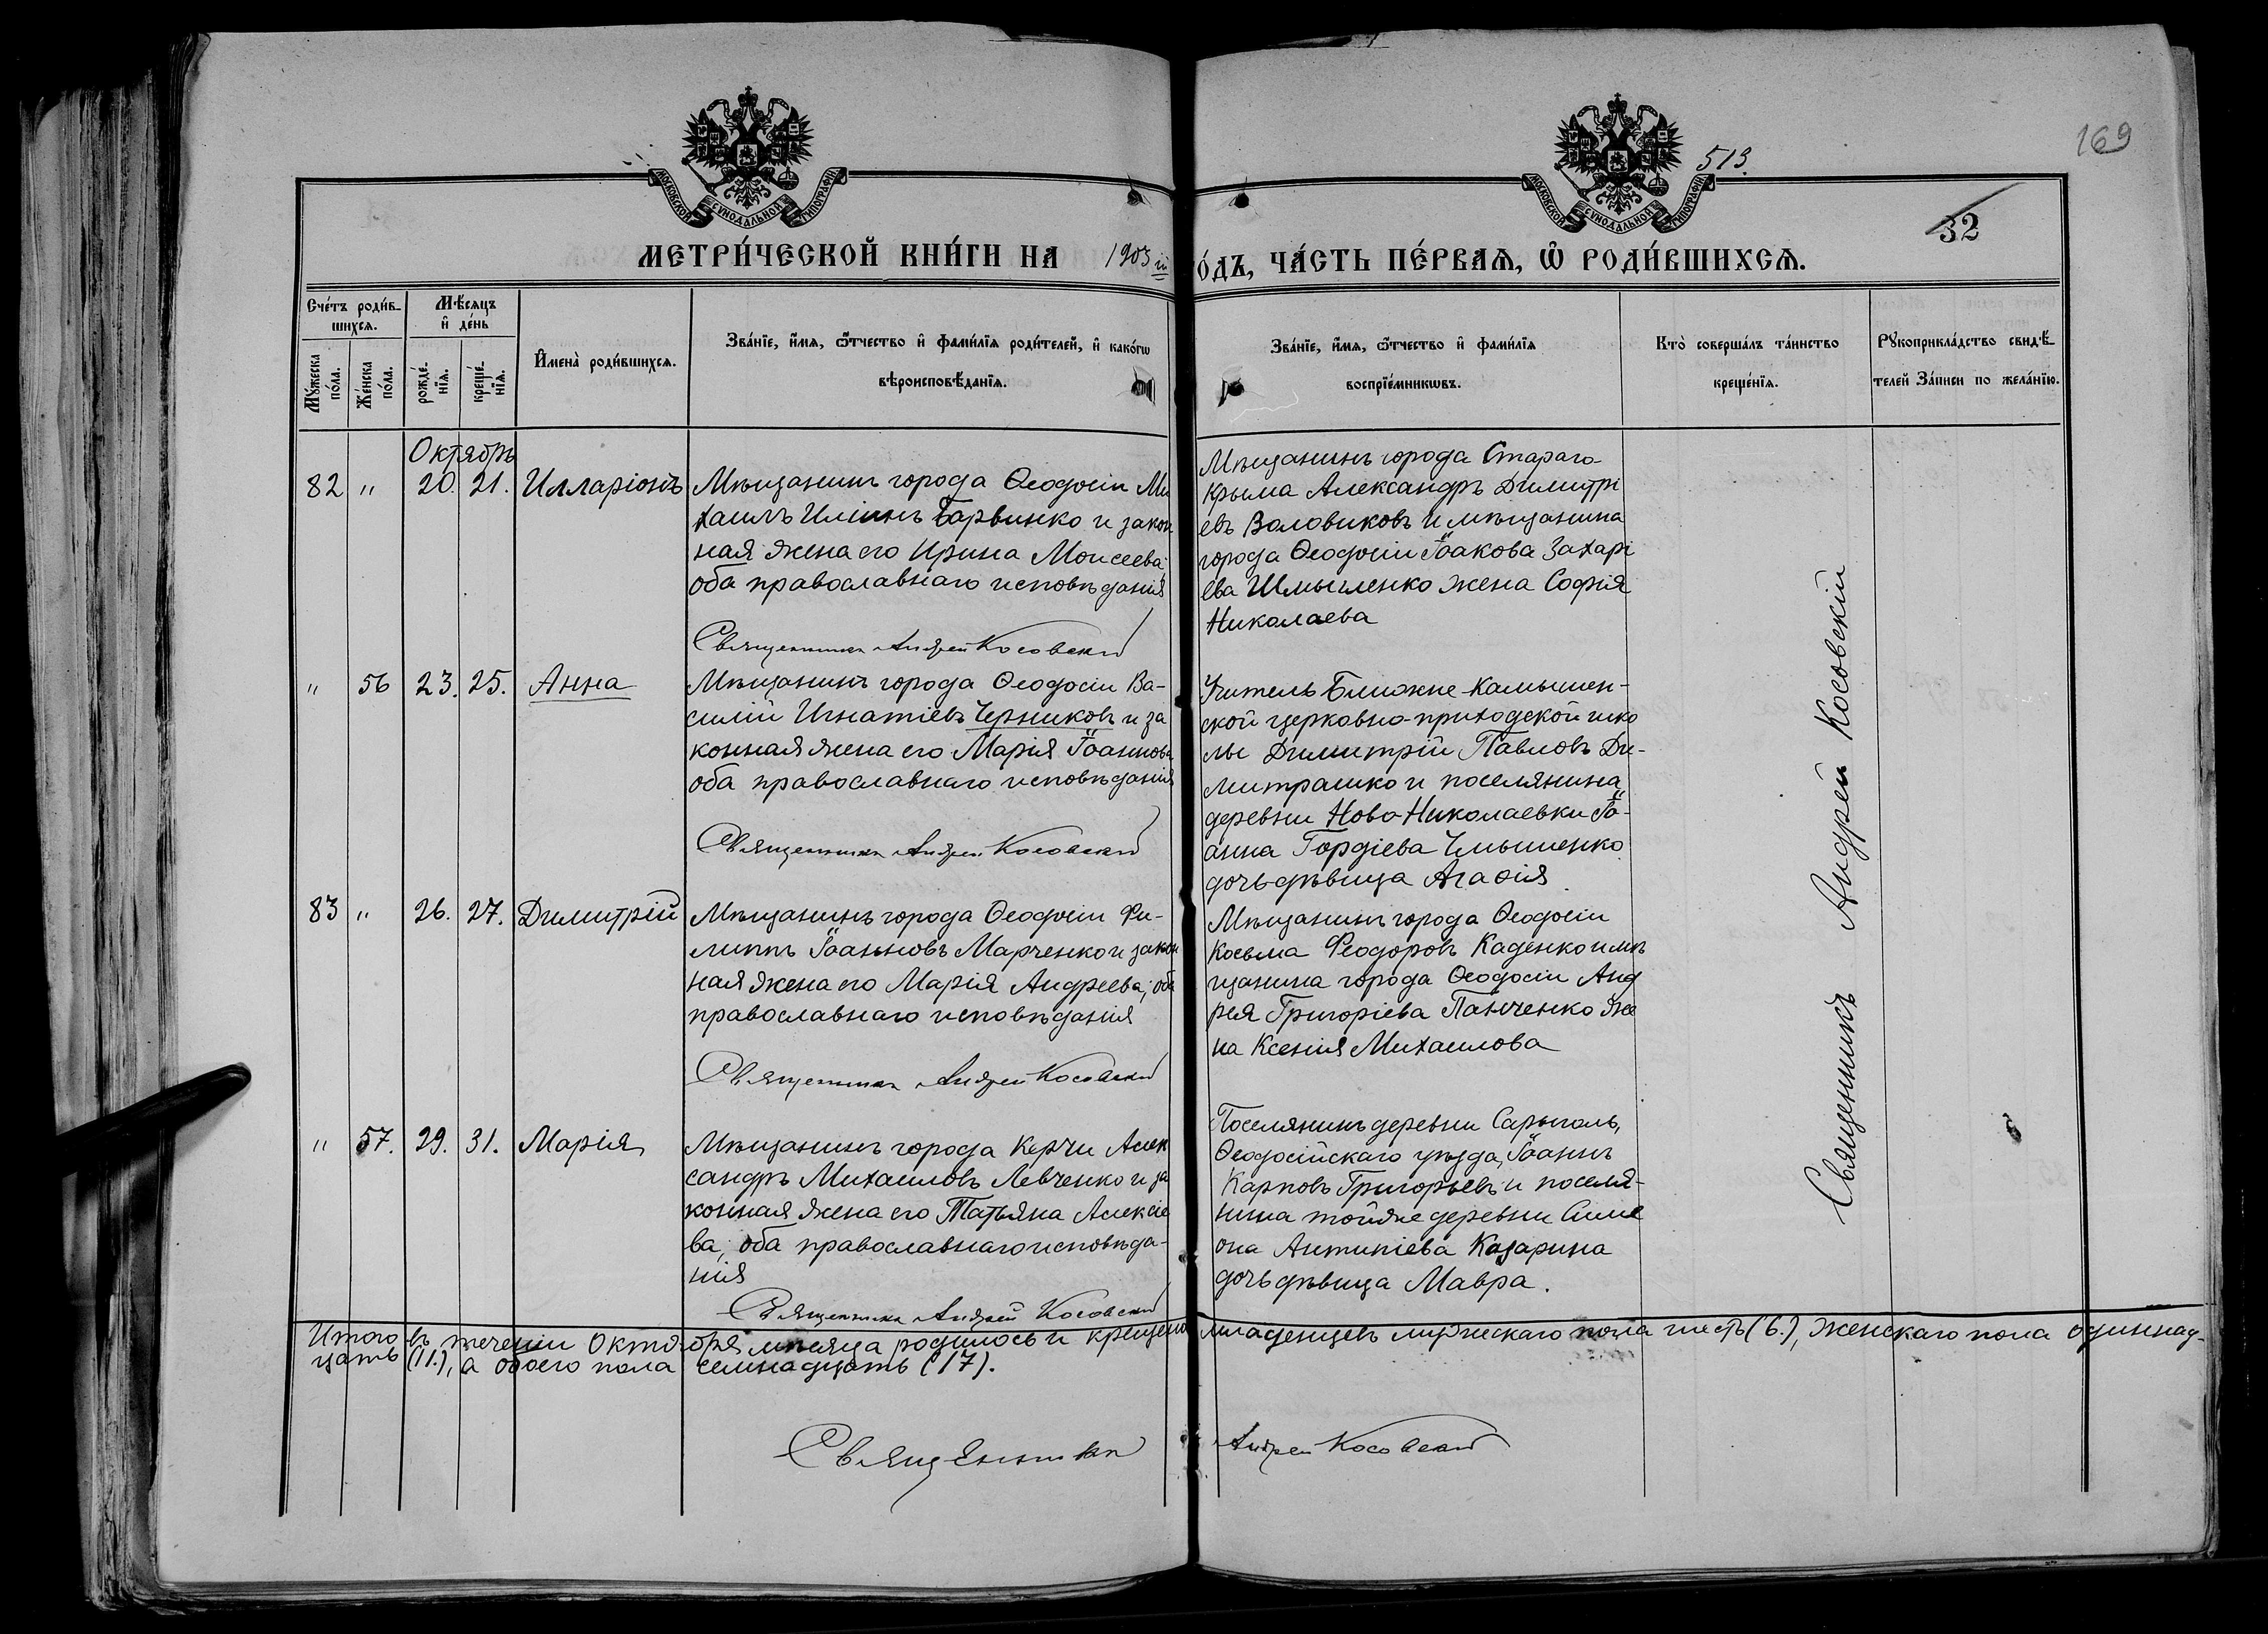 513.
169
32
МОСКОВСКОЙ СѴНОДАЛЬНОЙ ТИПОГРАФІИ
МОСКОВСКОЙ СѴНОДАЛЬНОЙ ТИПОГРАФІИ
МЕТРИ́ЧЕСКОЙ КНИ́ГИ НА 1903 й
о́дъ, ЧА́СТЬ ПЕ́РВАѦ, Ѡ҆ РОДИ́ВШИХСѦ.
Сче́тъ роди́в-
шихсѧ.
Мꙋ́жеска
по́ла.
Же́нска
по́ла.
Мѣ́сѧцъ
и҆ де́нь
рожде́-
нїѧ.
креще́-
нїѧ.
И҆мена̀ роди́вшихсѧ.
Зва́нїе, и҆́мѧ, ѻ҆́тчество и҆ фами́лїѧ роди́телей, и҆ како́гѡ
вѣроисповѣ́данїѧ.
Зва́нїе, и҆́мѧ, ѻ҆́тчество и҆ фами́лїѧ
воспрїе́мникѡвъ.
Кто̀ соверша́лъ та́инство
креще́нїѧ.
Рꙋкоприкла́дство свидѣ́-
телей за́писи по жела́нїю.
Октябрь
82 " 20. 21. Илларіонъ
Мѣщанинъ города Ѳеодосіи Ми
хаилъ Иліинъ Барвинко и закон
ная жена его Ирина Моисеева;
оба православнаго исповѣданія
Священникъ Андрей Косовскій
Мѣщанинъ города Стараго-
Крыма Александръ Димитрі
евъ Воловиковъ и мѣщанина
города Ѳеодосіи Іоакова Захарі
ева Шмыгленко жена Софія
Николаева
" 56 23. 25. Анна
Мѣщанинъ города Ѳеодосіи Ва-
силій Игнатіевъ Черниковъ и за
конная жена его Марія Іоаннова
оба православнаго исповѣданія
Священникъ Андрей Косовскій
Учитель Ближне-Камышен-
ской церковно-приходской шко
лы Димитрій Павловъ Ди-
митрашко и поселянина
деревни Ново Николаевки Іо-
анна Гордіева
дочь дѣвица Агаѳія
83 " 26. 27. Димитрій
Мѣщанинъ города Ѳеодосіи Фи-
липпъ Іоанновъ Марченко и закон
ная жена его Марія Андреева; оба
православнаго исповѣданія
Священникъ Андрей Косовскій
Мѣщанинъ города Ѳеодосіи
Косьма Феодоровъ Каденко и мѣ
щанина города Ѳеодосіи Анд
рея Григоріева Панченко же
на Ксенія Михаилова
" 57. 29. 31. Марія
Мѣщанинъ города Керчи Алек
сандръ Михаиловъ Левченко и за
конная жена его Татьяна Алексіе
ва; оба православнаго исповѣда-
нія
Священникъ Андрей Косовскій
Поселянинъ деревни Сарыголь,
Ѳеодосійскаго уѣзда, Іоаннъ
Карповъ Григорьевъ и поселя-
нина тойже деревни Симе
она Антипіева Казарина
дочь дѣвица Мавра.
Священникъ Андрей Косовскій
Итого въ теченіи Октября мѣсяца родилось и крещено младенцевъ мужескаго пола шесть (6.), женскаго пола одиннад-
цать (11.), а обоего пола семнадцать (17).
Священникъ Андрей Косовскій